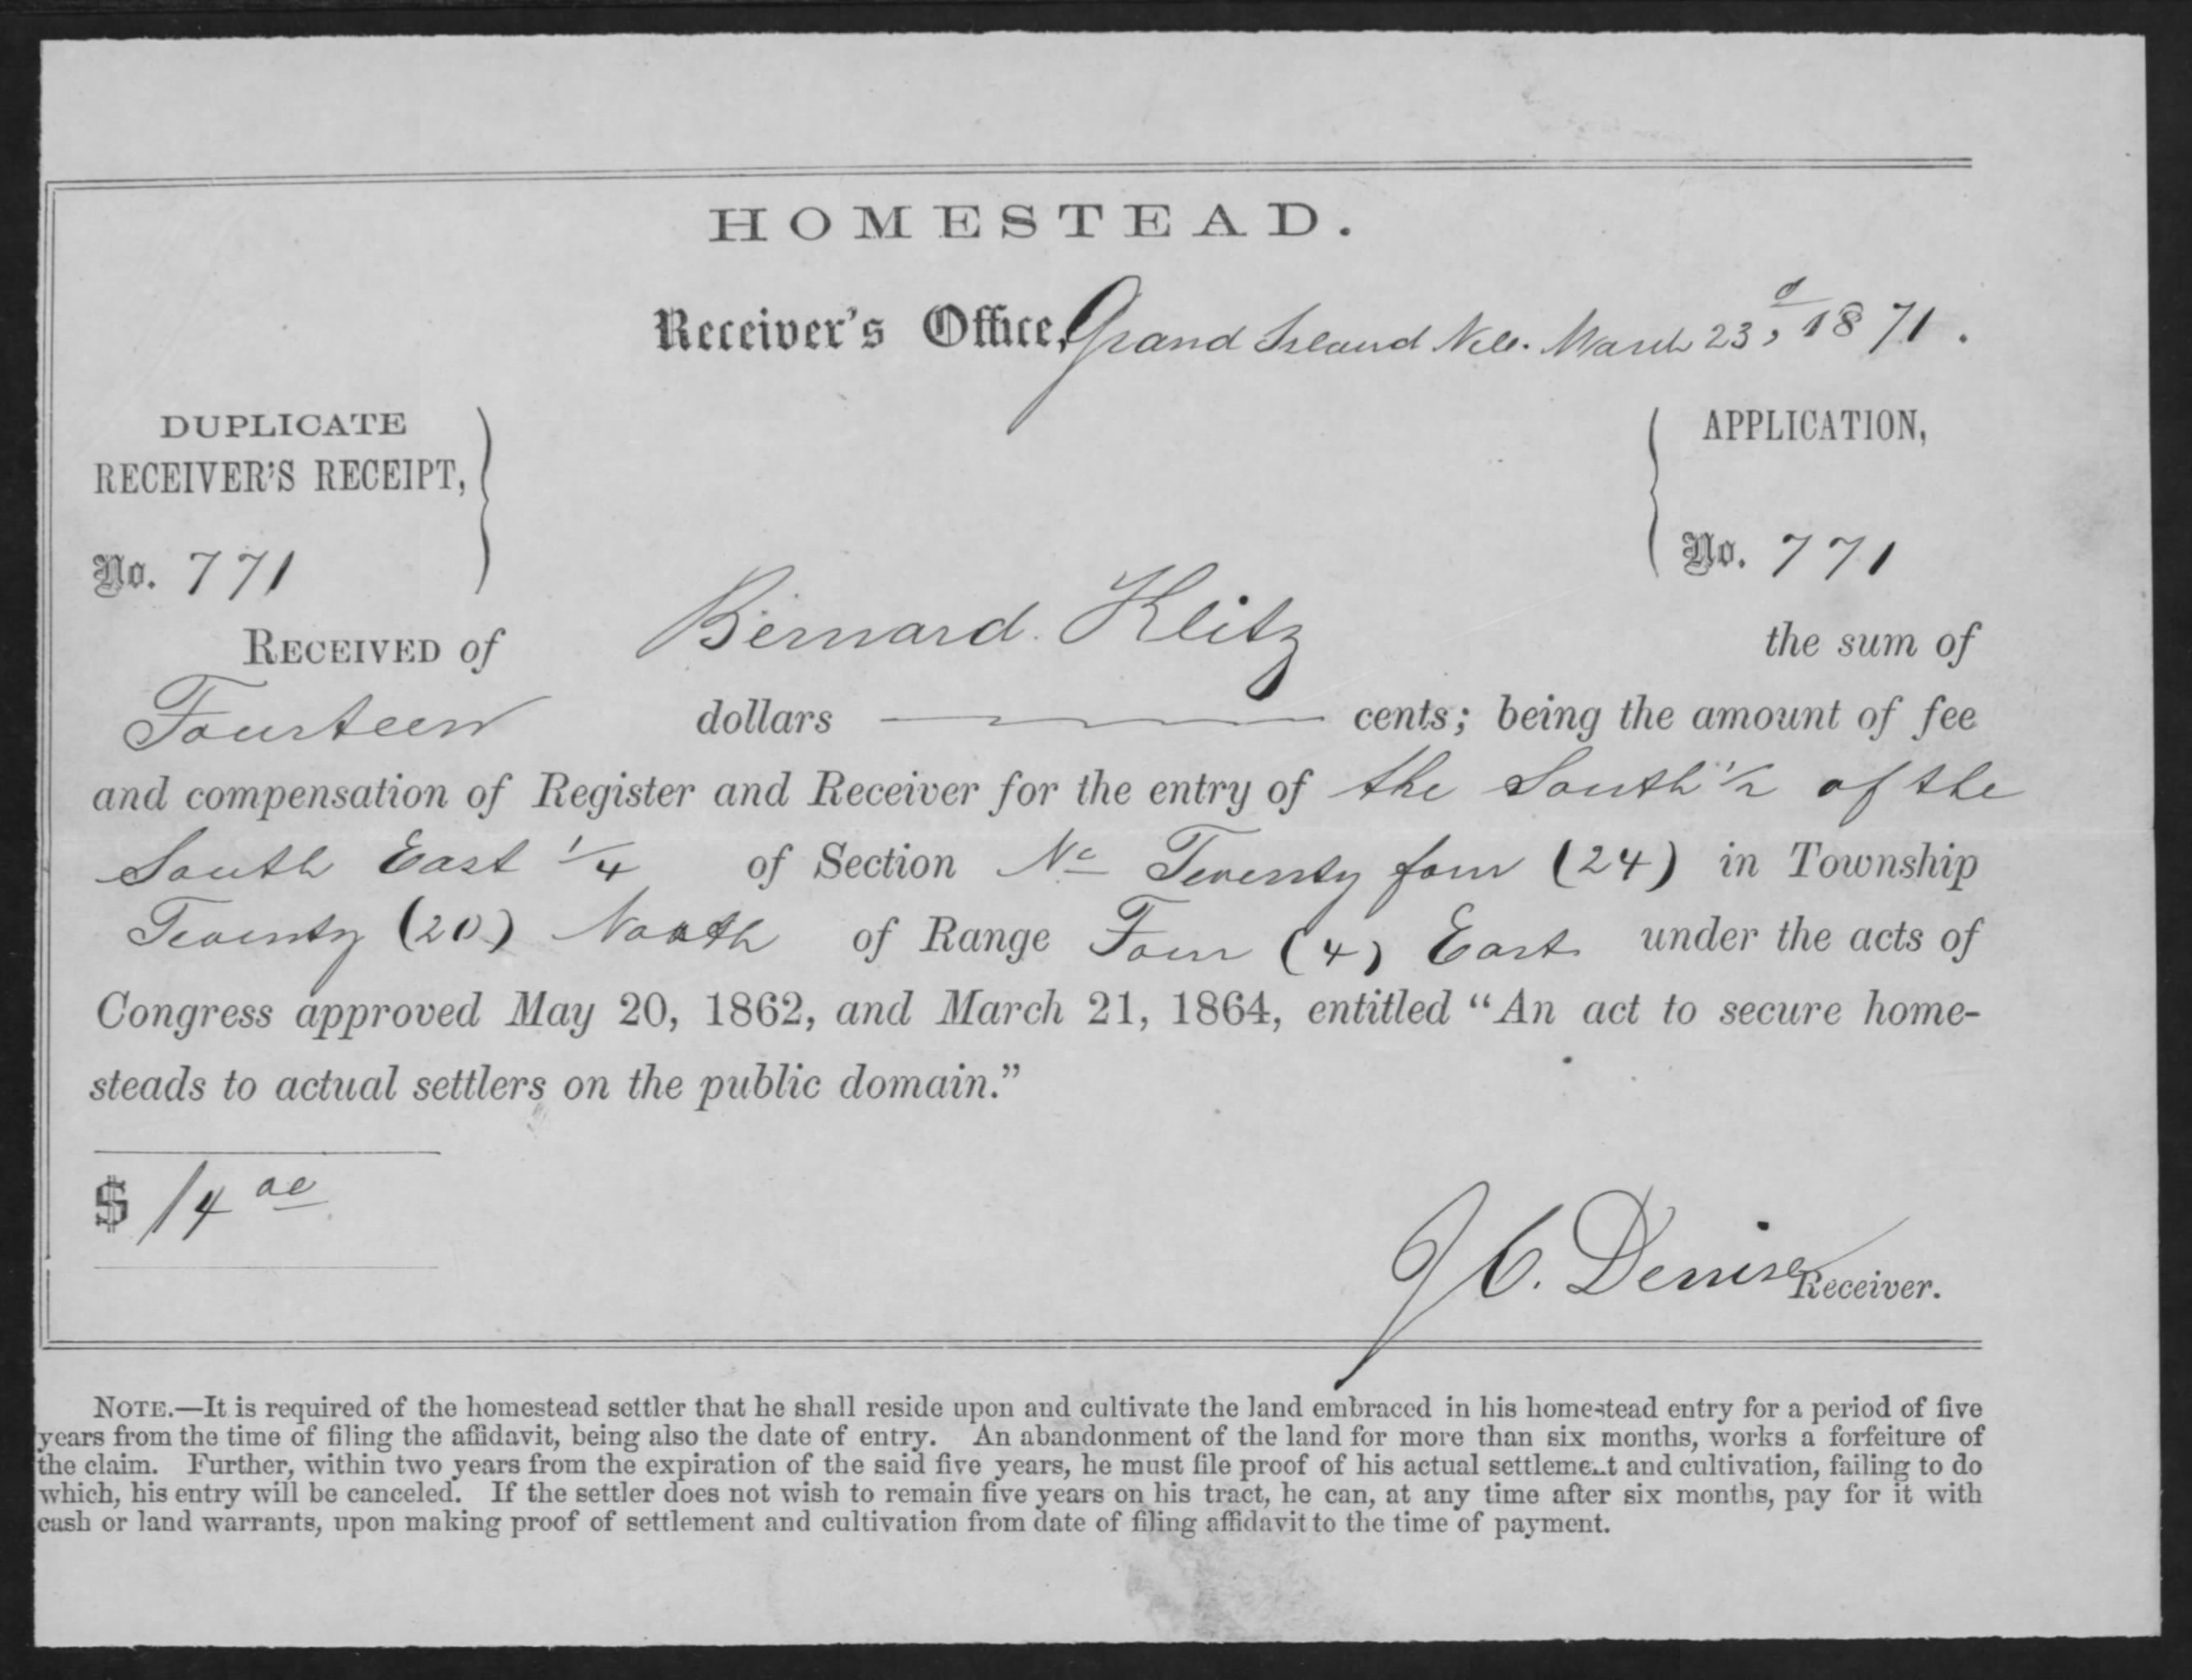 HOMESTEAD.
Receiver's Office, Grand Island Neb. March 23d, 1871.
DUPLICATE
RECEIVER'S RECEIPT,
No. 771
APPLICATION,
No. 771
RECEIVED of Bernard Klitz the sum of
Fourteen dollars ——— cents; being the amount of fee
and compensation of Register and Receiver for the entry of the South 1/2 of the
South East 1/4 of Section No Twenty four (24) in Township
Twenty (20) North of Range Four (4) East under the acts of
Congress approved May 20, 1862, and March 21, 1864, entitled "An act to secure home-
steads to actual settlers on the public domain."
$ 14 00
J C. Denise Receiver.
NOTE.—It is required of the homestead settler that he shall reside upon and cultivate the land embraced in his homestead entry for a period of five
years from the time of filing the affidavit, being also the date of entry. An abandonment of the land for more than six months, works a forfeiture of
the claim. Further, within two years from the expiration of the said five years, he must file proof of his actual settlement and cultivation, failing to do
which, his entry will be canceled. If the settler does not wish to remain five years on his tract, he can, at any time after six months, pay for it with
cash or land warrants, upon making proof of settlement and cultivation from date of filing affidavit to the time of payment.